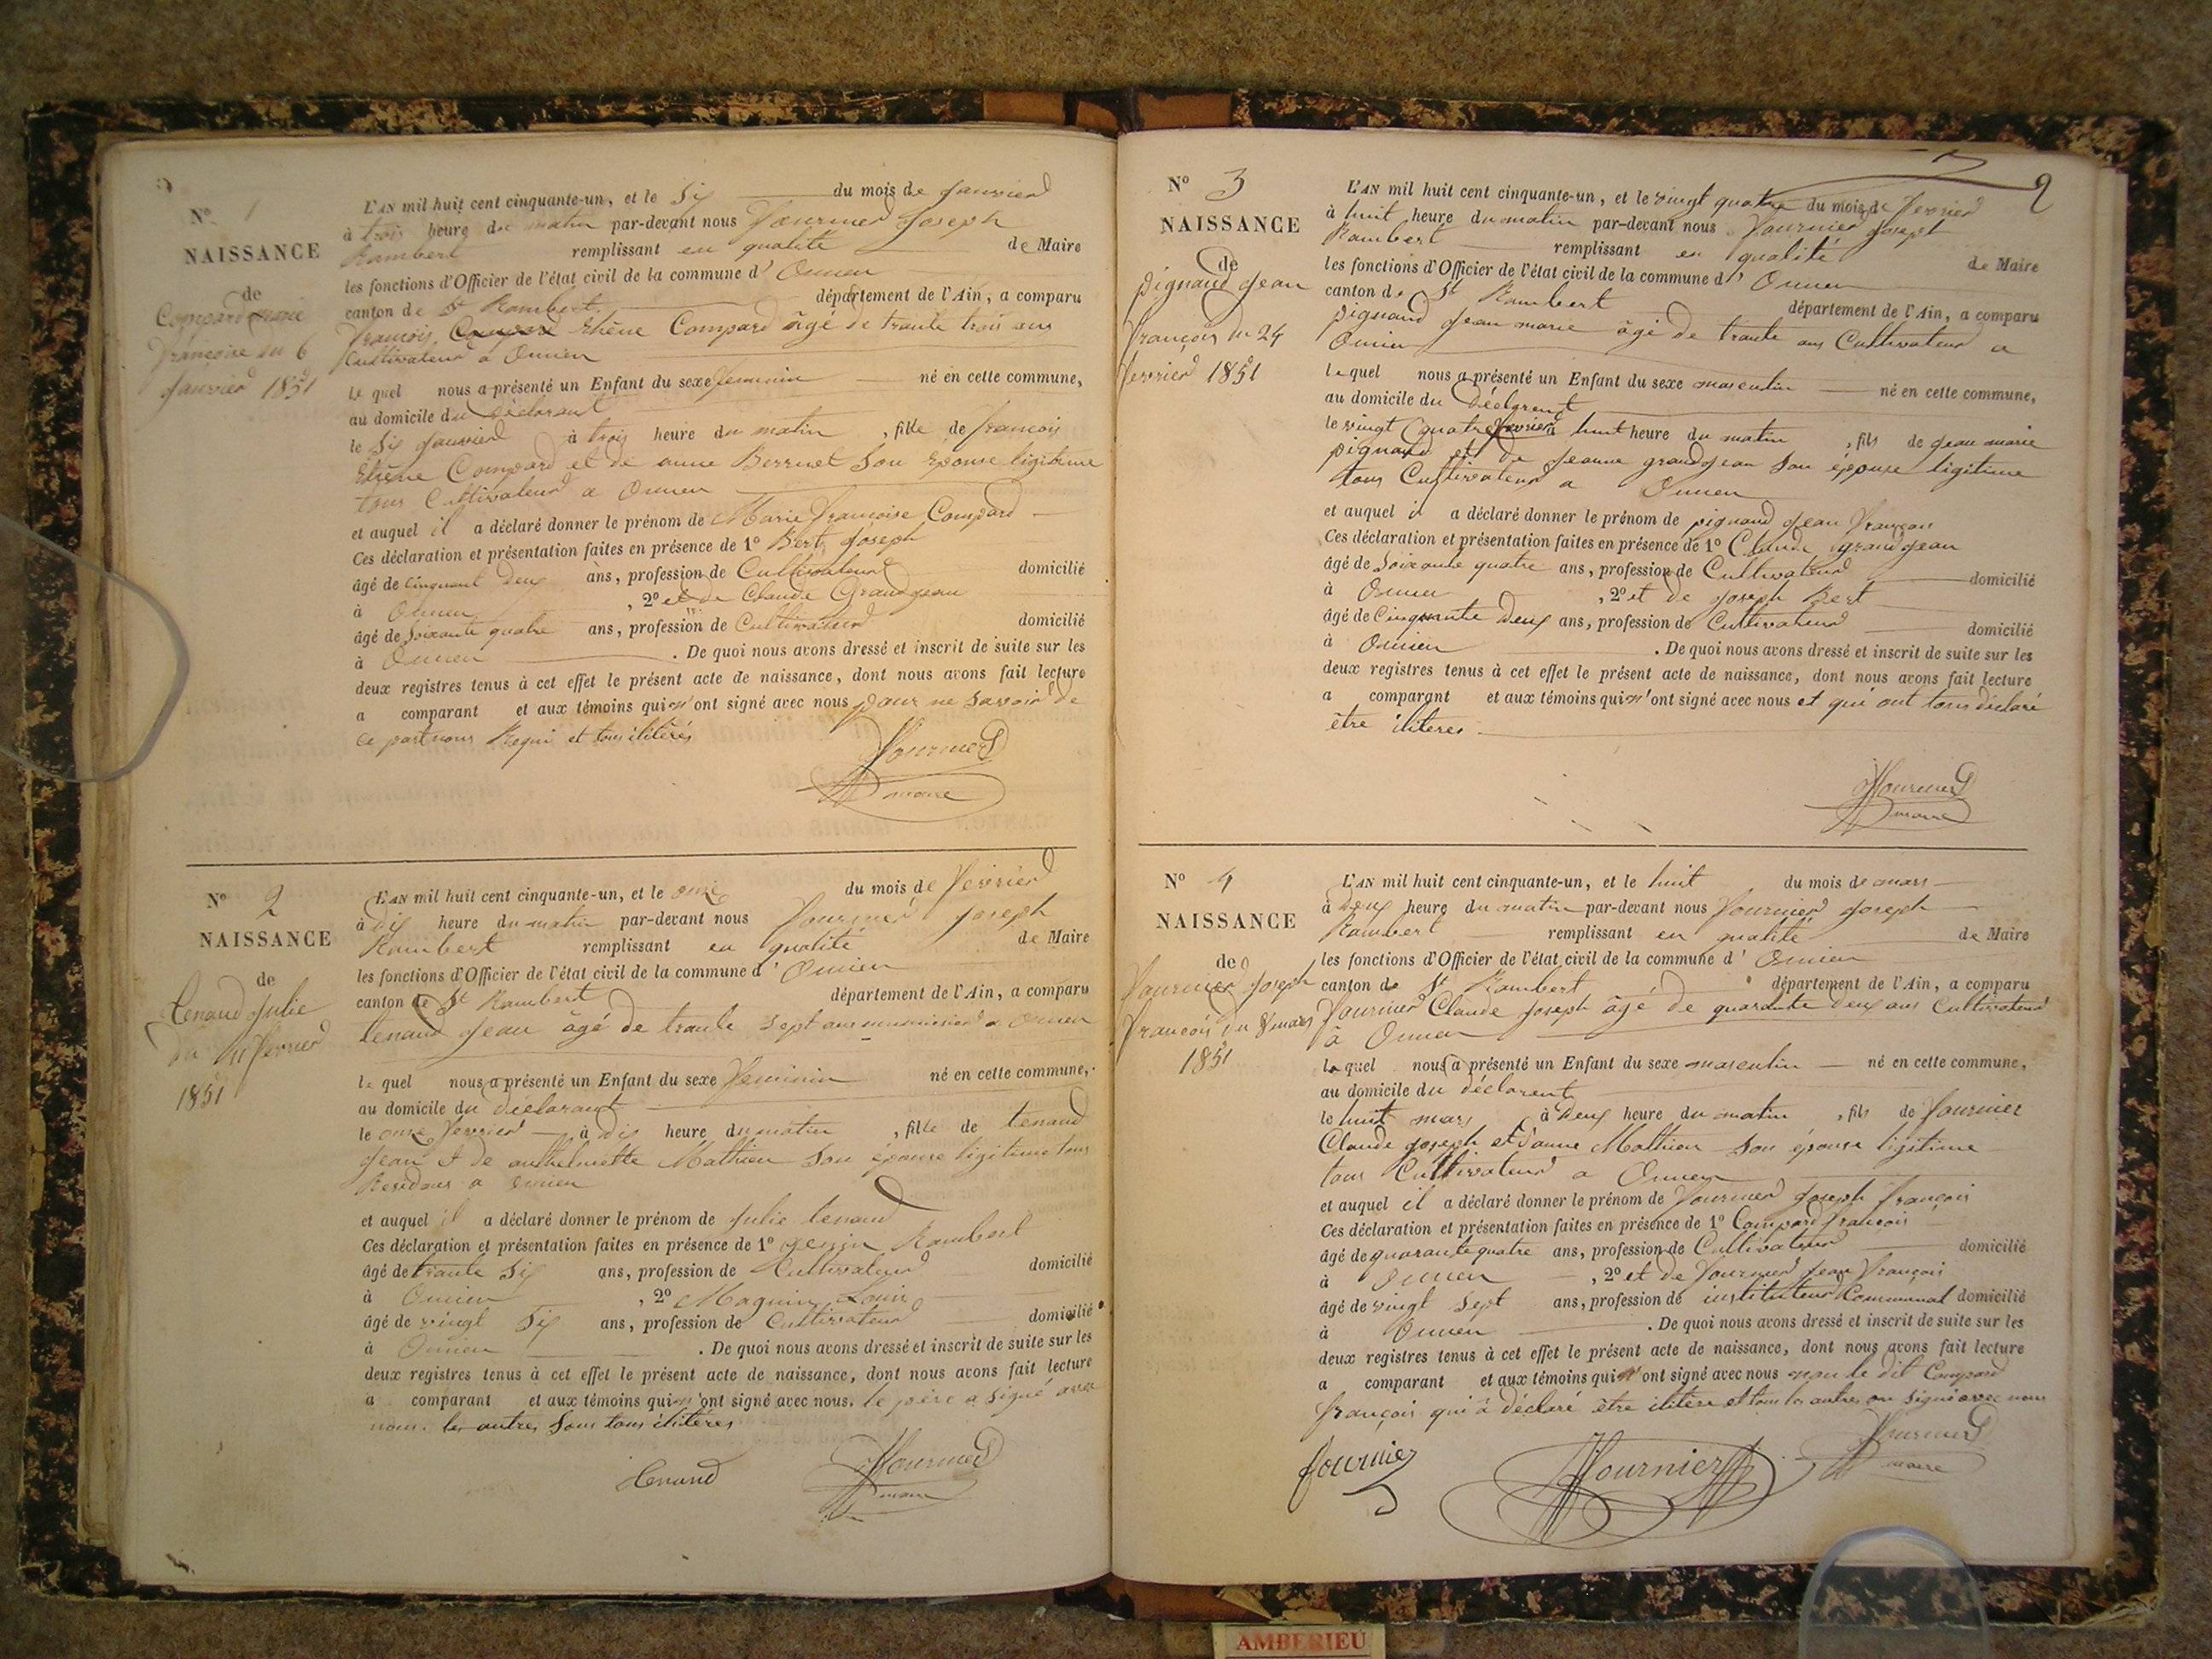 No 1
NAISSANCE
de
Compard marie
françoise du 6
janvier 1851
L'AN mil huit cent cinquante-un, et le six du mois de janvier
à trois heure du matin par-devant nous Fournier Joseph
Rambert remplissant en qualité de Maire
les fonctions d'Officier de l'état civil de la commune d' Oncieu
canton de St Rambert département de l'Ain, a comparu
françois Ehêne Compard âgé de trante trois ans
Cultivateur a Oncieu
le quel nous a présenté un Enfant du sexe feminin né en cette commune,
au domicile du déclarant
le six janvier à trois heure du matin , fille de françois
Ehêne Compard et de anne Berrenet son Epouse légitime
tous Cultivateur a Oncieu
et auquel il a déclaré donner le prénom de Marie françoise Compard
Ces déclaration et présentation faites en présence de 1º Bert joseph
âgé de cinquant deux ans, profession de Cultivateur domicilié
à Oncieu , 2º et de Claude Grandjean
âgé de soixante quatre ans, profession de Cultivateur domicilié
à Oncieu . De quoi nous avons dressé et inscrit de suite sur les
deux registres tenus à cet effet le présent acte de naissance, dont nous avons fait lecture
a comparant et aux témoins qui n'ont signé avec nous pour ne savoir de
ce par nous Requi et tous ilitérés
Fournier
maire
No 2
NAISSANCE
de
tenand Julie
du 11 fevrier
1851
L'AN mil huit cent cinquante-un, et le onze du mois de fevrier
à dix heure du matin par-devant nous Fournier Joseph
Rambert remplissant en qualité de Maire
les fonctions d'Officier de l'état civil de la commune d' Oncieu
canton de St Rambert département de l'Ain, a comparu
tenand jean âgé de trante sept ans a Oncieu
le quel nous a présenté un Enfant du sexe feminin né en cette commune,
au domicile du déclarant
le onze fevrier à dix heure du matin , fille de tenand
jean et de anthelmette Mathieu son épouse légitime tous
Residans a Oncieu
et auquel il a déclaré donner le prénom de julie tenand
Ces déclaration et présentation faites en présence de 1º Rambert
âgé de trante six ans, profession de Cultivateur domicilié
à Oncieu , 2º Magnin Louis
âgé de vingt six ans, profession de Cultivateur domicilié
à Oncieu . De quoi nous avons dressé et inscrit de suite sur les
deux registres tenus à cet effet le présent acte de naissance, dont nous avons fait lecture
a comparant et aux témoins qui n'ont signé avec nous. le père a signé avec
nous. les autres sont tous ilitéres
tenand Fournier
maire
2
No 3
NAISSANCE
de
pignaud jean
françois du 24
fevrier 1851
L'AN mil huit cent cinquante-un, et le vingt quatre du mois de fevrier
à huit heure du matin par-devant nous Fournier joseph
Rambert remplissant en qualité de Maire
les fonctions d'Officier de l'état civil de la commune d' Oncieu
canton de St Rambert département de l'Ain, a comparu
pignaud jean marie âgé de trante ans Cultivateur a
Oncieu
le quel nous a présenté un Enfant du sexe masculin né en cette commune,
au domicile du déclarent
le vingt quatre fevrier à huit heure du matin , fils de jean marie
pignaud et de jeanne grandjean son épouse légitime
tous Cultivateur a Oncieu
et auquel il a déclaré donner le prénom de pignaud jean françois
Ces déclaration et présentation faites en présence de 1º Claude grandjean
âgé de soixante quatre ans, profession de Cultivateur domicilié
à Oncieu , 2º et de joseph Bert
âgé de Cinquante deux ans, profession de Cultivateur domicilié
à Oncieu . De quoi nous avons dressé et inscrit de suite sur les
deux registres tenus à cet effet le présent acte de naissance, dont nous avons fait lecture
a comparant et aux témoins qui n'ont signé avec nous et qui ont tous déclaré
être ilitéres
Fournier
maire
No 4
NAISSANCE
de
Fournier joseph
françois du 8 mars
1851
L'AN mil huit cent cinquante-un, et le huit du mois de mars
à deux heure du matin par-devant nous Fournier joseph
Rambert remplissant en qualité de Maire
les fonctions d'Officier de l'état civil de la commune d' Oncieu
canton de St Rambert département de l'Ain, a comparu
Fournier Claude joseph âgé de quarante deux ans Cultivateur
à Oncieu
le quel nous a présenté un Enfant du sexe masculin né en cette commune,
au domicile du déclarent
le huit mars à deux heure du matin , fils de Fournier
Claude joseph et d'anne Mathieu son épouse légitime
tous Cultivateur a Oncieu
et auquel il a déclaré donner le prénom de Fournier joseph françois
Ces déclaration et présentation faites en présence de 1º Compard françois
âgé de quarante quatre ans, profession de Cultivateur domicilié
à Oncieu , 2º et de Fournier jean françois
âgé de vingt sept ans, profession de instituteur Communal domicilié
à Oncieu . De quoi nous avons dressé et inscrit de suite sur les
deux registres tenus à cet effet le présent acte de naissance, dont nous avons fait lecture
a comparant et aux témoins qui n'ont signé avec nous non le dit Compard
françois qui a déclaré être ilitére et tous les autres on signé avec nous
fournier Fournier Fournier
maire
AMBERIEU